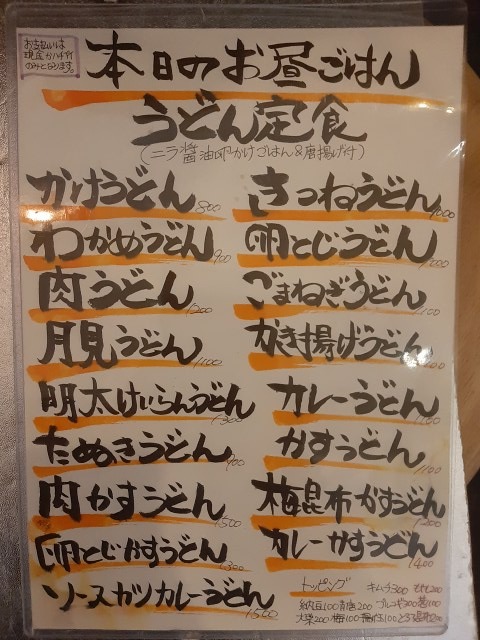 お支払いは
現金か
のみとなります。
本日のお昼ごはん
うどん定食
(ニラ醤油卵かけごはん&唐揚げ付)
かけうどん 800
きつねうどん 1000
わかめうどん 900
卵とじうどん 1000
肉うどん 1200
ごまねぎうどん 1100
月見うどん 1100
かき揚げうどん
明太けいらんうどん 1300
カレーうどん
たぬきうどん 900
かすうどん 1100
肉かすうどん 1500
梅昆布かすうどん 1200
卵とじかすうどん 1300
カレーかすうどん 1400
ソースカツカレーうどん 1500
トッピング キムチ300
納豆100
大葉200 梅100